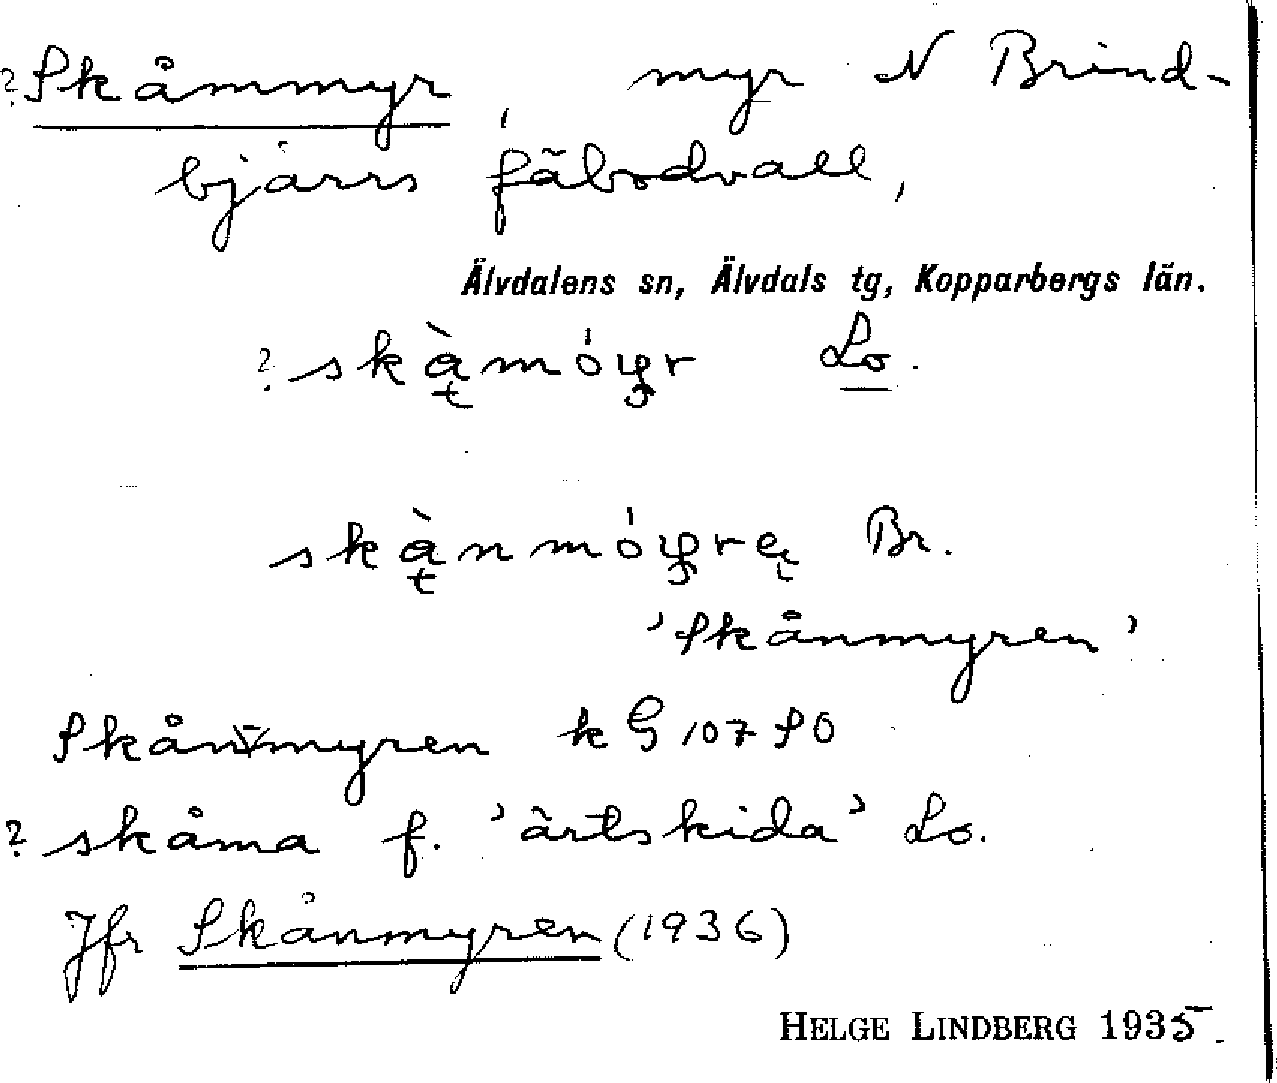 ?Skåmmyr, myr N Brind-
bjärrs fäbodvall,
Älvdalens sn, Älvdals tg, Kopparbergs län.
? skàmóyr Lo.
skànmóyrę Br.
'Skånmyren'
Skånmyren k G 107 SO
? skåma f. 'ärtskida' Lo.
Jfr Skånmyren (1936)
HELGE LINDBERG 1935.